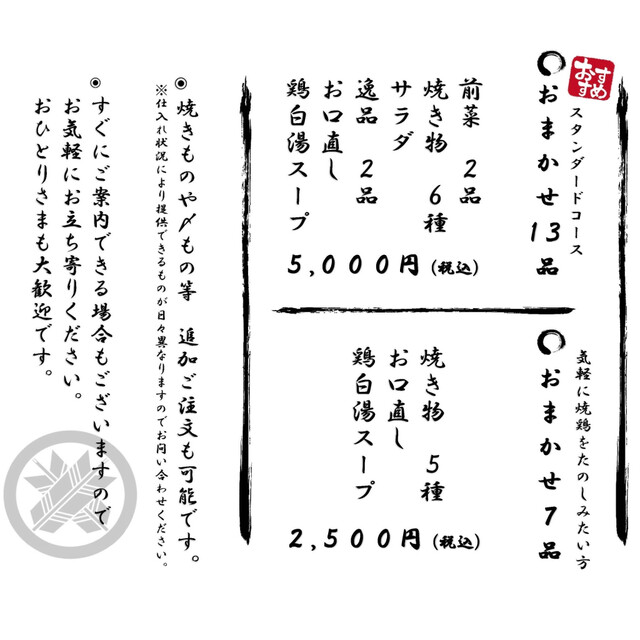 おすすめ
スタンダードコース
おまかせ13品
前菜 2品
焼き物 6種
サラダ
逸品 2品
お口直し
鶏白湯スープ
5,000円(税込)
気軽に焼鶏をたのしみたい方
おまかせ7品
焼き物 5種
お口直し
鶏白湯スープ
2,500円(税込)
◉焼きものや〆もの等 追加ご注文も可能です。
※仕入れ状況により提供できるものが日々異なりますのでお問い合わせください。
◉すぐにご案内できる場合もございますので
お気軽にお立ち寄りください。
おひとりさまも大歓迎です。